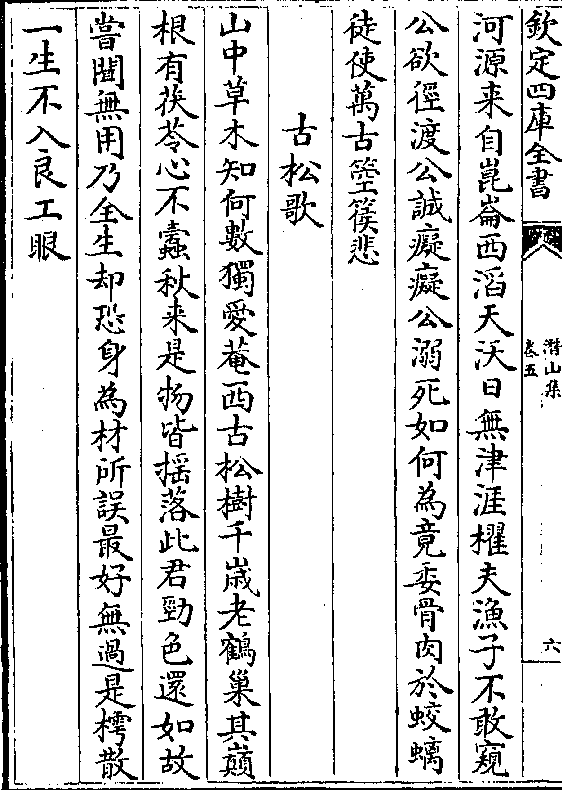 欽定四庫全書
潛山集
卷五
六
河源来自崑崙西滔天沃日無津涯櫂夫漁子不敢窺
公欲徑渡公誠癡癡公溺死如何為竟委骨肉於蛟螭
徒使萬古箜篌悲
古松歌
山中草木知何數獨愛菴西古松樹千嵗老鶴巢其巔
根有茯苓心不蠧秋来是物皆揺落此君勁色還如故
嘗聞無用乃全生却恐身為材所誤最好無過是樗散
一生不入良工眼